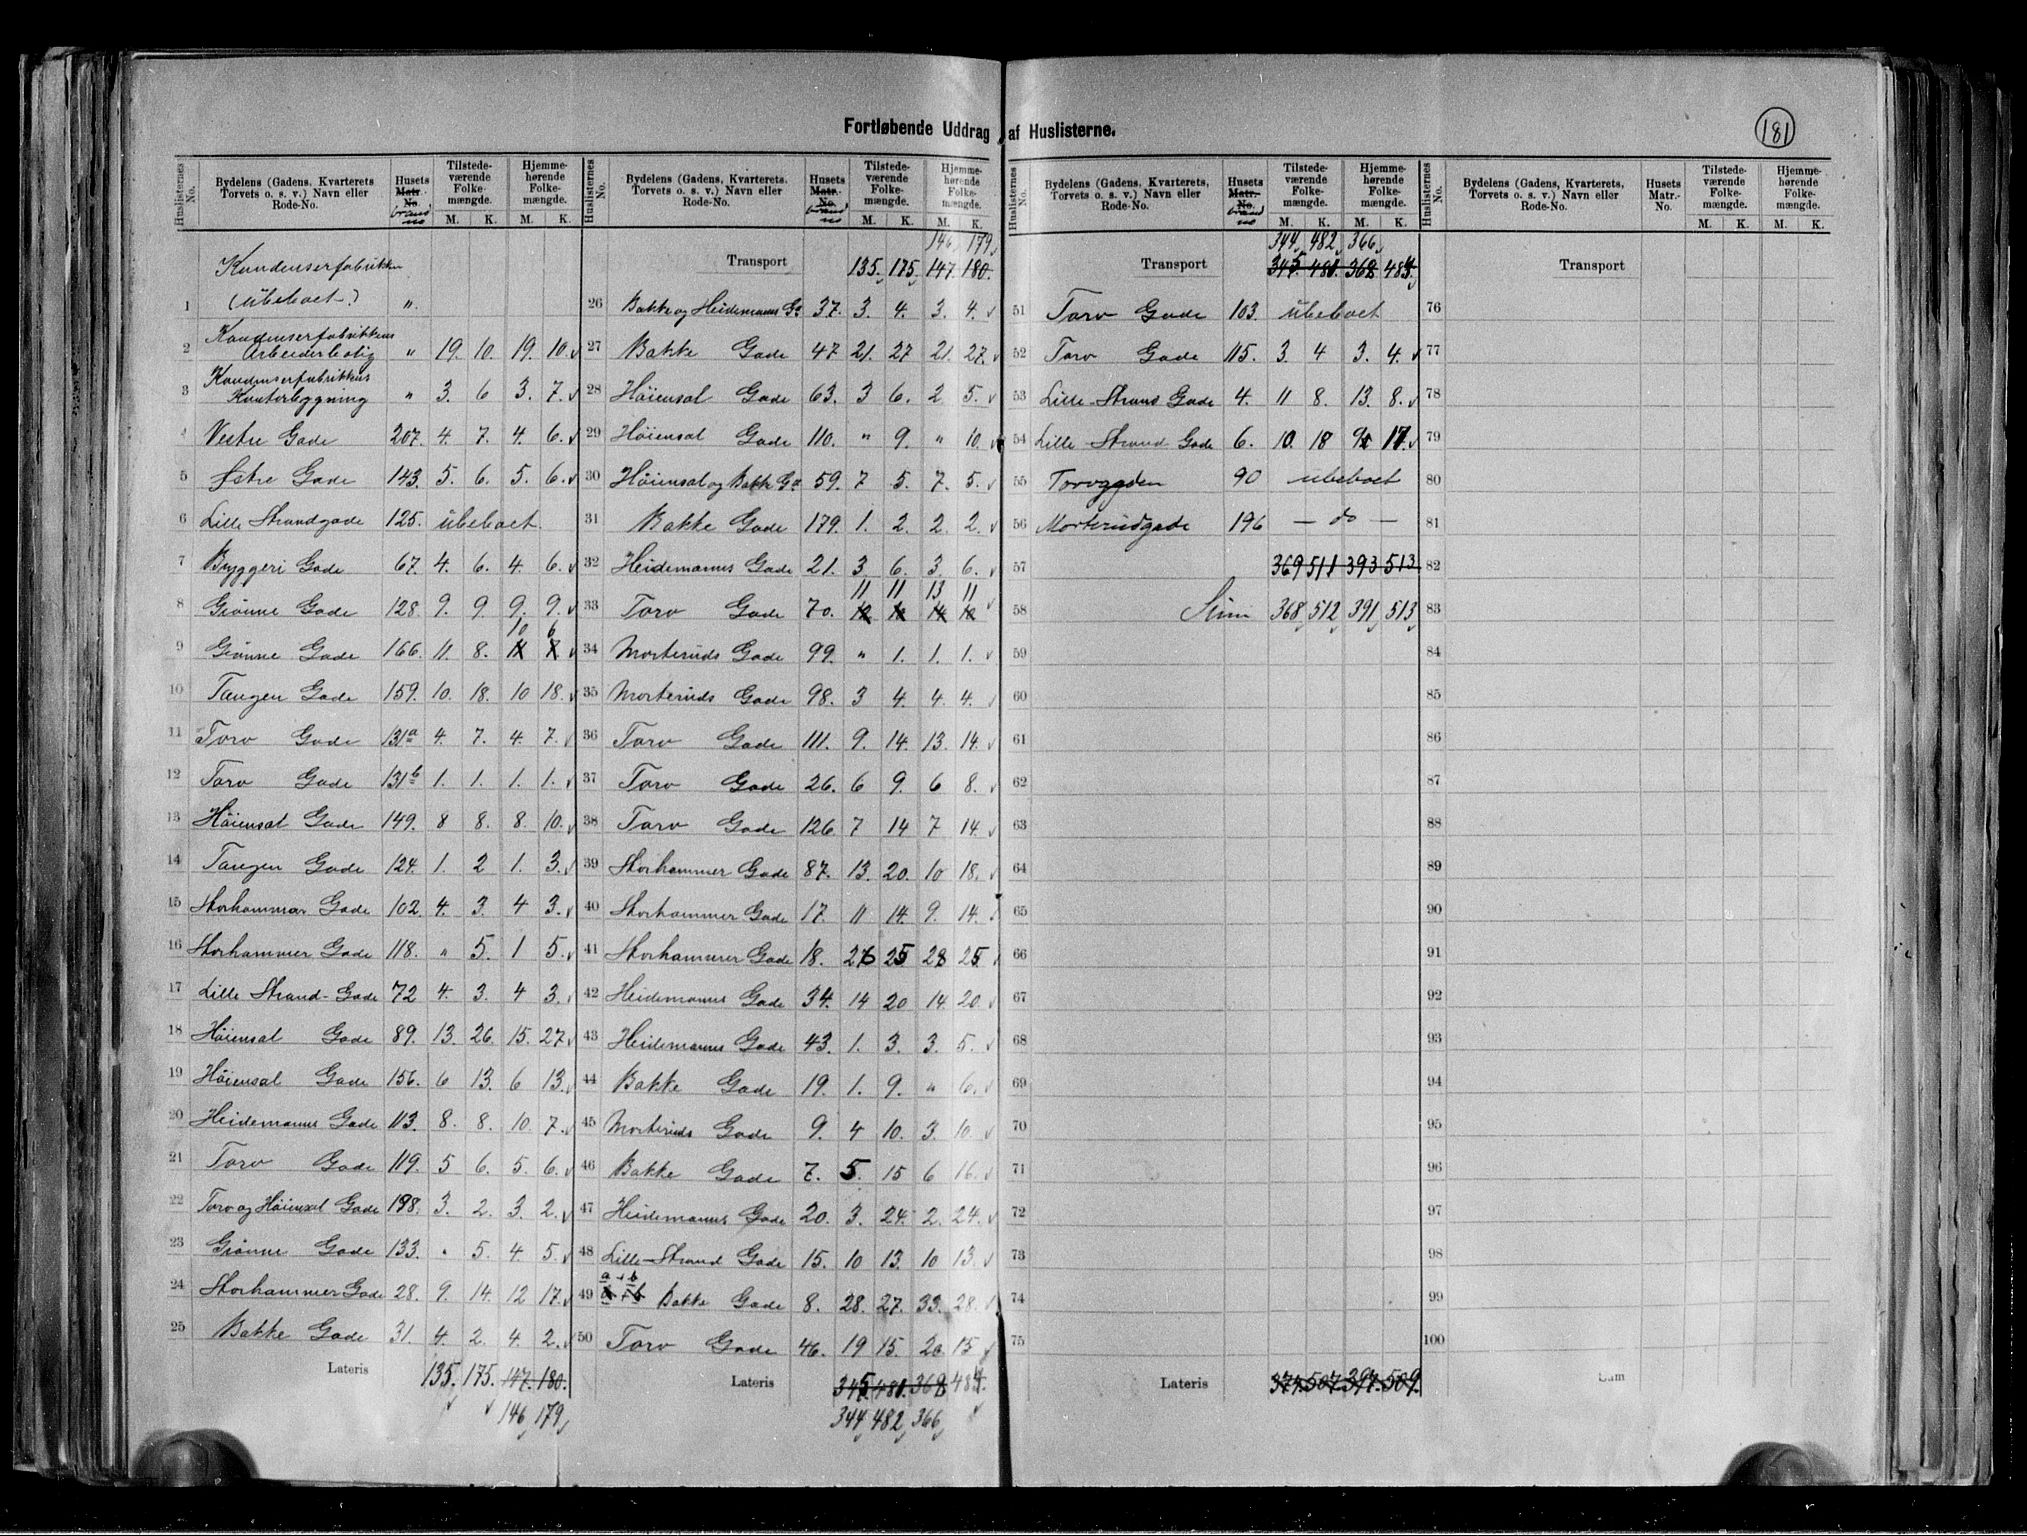 Fortløbende Uddrag af Huslisterne.
181
Huslisternes No. Bydelens (Gadens, Kvarterets Torvets o. s. v.) Navn eller Rode-No. Husets Matr.-No brand no Tilstede-værende Folke-mængde. M. K. Hjemme-hørende Folke-mængde. M. K.
1 Kondenserfabrikken (ubeboet) "
2 Kondenserfabrikkens Arbeiderbolig " 19. 10. 19. 10.
3 Kondenserfabrikkens Kontorbygning " 3. 6 3. 7.
4 Vestre Gade 207. 4. 7. 4. 6.
5 Østre Gade 143. 5. 6. 5. 6.
6 Lille Strandgade 125. ubeboet.
7 Byggeri Gade 67. 4. 6. 4. 6.
8 Grønne Gade 128. 9. 9 9. 9.
9 Grønne Gade 166. 11. 8. 10 6
10 Tangen Gade 159. 10. 18. 10 18.
11 Torv Gade 131a 4. 7. 4. 7.
12 Torv Gade 131b 1. 1. 1. 1.
13 Høiensal Gade 149. 8 8. 8. 10.
14 Tangen Gade 124. 1. 2 1. 3.
15 Storhammar Gade 102. 4. 3. 4 3.
16 Storhammer Gade 118. " 5. 1 5.
17 Lille Strand-Gade 72 4. 3. 4 3.
18 Høiensal Gade 89. 13. 26. 15. 27.
19 Høiensal Gade 156. 6 13. 6 13.
20 Heidemanns Gade 113. 8. 8. 10. 7.
21 Torv Gade 119. 5 6. 5. 6.
22 Torv og Høiensal Gade 198. 3. 2. 3. 2.
23 Grønne Gade 133. " 5. 4. 5.
24 Storhammer Gade 28. 9. 14. 12 17.
25 Bakke Gade 31. 4. 2. 4. 2.
Lateris 135. 175. 147. 180.
146 179
Huslisternes No. Bydelens (Gadens, Kvarterets, Torvets o. s. v.) Navn eller Rode-No. Husets Matr.-No brand no Tilstede-værende Folke-mængde. M. K. Hjemme-hørende Folke-mængde. M. K.
146 179
Transport 135. 175. 147. 180.
26 Bakke og Heidemanns Ga 37. 3. 4. 3. 4.
27 Bakke Gade 47 21. 27 21. 27.
28 Høiensal Gade 63. 3 6. 2 5.
29 Høiensal Gade 110. " 9. " 10.
30 Høiensal og Bakke Ga 59. 7 5. 7. 5.
31 Bakke Gade 179. 1. 2. 2. 2.
32 Heidemanns Gade 21. 3 6. 3. 6.
11 11 13 11
33 Torv Gade 70. 12 11 14 12
34 Morteruds Gade 99. " 1. 1. 1.
35 Morteruds Gade 98. 3 4. 4. 4.
36 Torv Gade 111. 9. 14. 13. 14.
37 Torv Gade 26. 6 9. 6 8.
38 Torv Gade 126. 7 14 7 14.
39 Storhammer Gade 87. 13. 20. 10 18.
40 Storhammer Gade 17. 11 14. 9. 14.
41 Storhammer Gade 18. 26 25 28 25
42 Heidemanns Gade 34. 14 20 14. 20.
43 Heidemanns Gade 43. 1. 3. 3. 5.
44 Bakke Gade 19. 1. 9. " 6.
45 Morteruds Gade 9. 4 10. 3. 10.
46 Bakke Gade 7. 5. 15 6 16.
47 Heidemanns Gade 20. 3. 24. 2. 24.
48 Lille-Strand Gade 15. 10 13. 10 13.
a + b
49 Bakke Gade 8. 28. 27. 33. 28.
50 Torv Gade 46. 19 15. 20. 15
Lateris 345 481. 368 484.
344 482 366
Huslisternes No. Bydelens (Gadens, Kvarterets, Torvets o. s. v.) Navn eller Rode-No. Husets Matr.-No. brand no Tilstede-værende Folke-mængde. M. K. Hjemme-hørende Folke-mængde. M. K.
344 482 366
Transport 345 481. 368 484
51 Torv Gade 103. ubeboet
52 Torv Gade 115. 3. 4 3. 4.
53 Lille-Strand Gade 4. 11 8. 13. 8.
54 Lille Strand Gade 6. 10. 18 9 17.
55 Torvggden 90 ubeboet
56 Morterudgade 196 — do —
57 369 511 393 513
58 Sum 368 512 391 513
59
60
61
62
63
64
65
66
67
68
69
70
71
72
73
74
75
Lateris 374. 507. 397. 509.
Huslisternes No. Bydelens (Gadens, Kvarterets, Torvets o. s. v.) Navn eller Rode-No. Husets Matr.-No. Tilstede-værende Folke-mængde. M. K. Hjemme-hørende Folke-mængde. M. K.
Transport
76
77
78
79
80
81
82
83
84
85
86
87
88
89
90
91
92
93
94
95
96
97
98
99
100
Sum